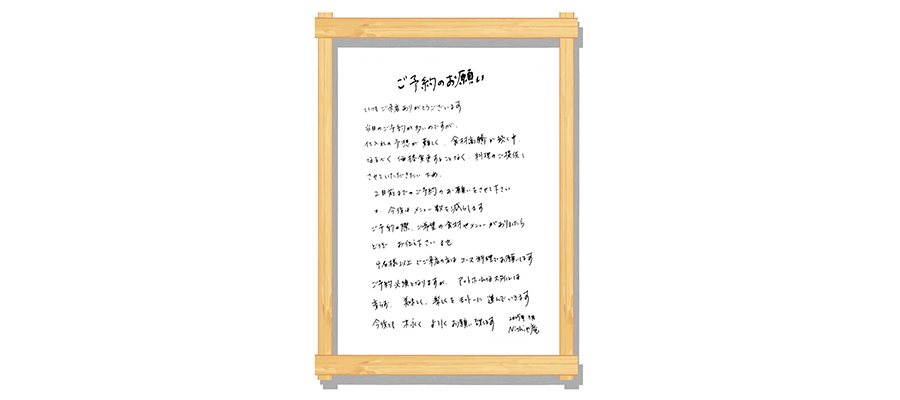 ご予約のお願い
いつもご来店ありがとうございます
当日のご予約が多いのですが、
仕入れの予想が難しく、食材高騰が続く中、
なるべく価格変更することなく、料理のご提供を
させていただきたい為、
2日前までのご予約のお願いをさせて下さい
又、今後はメニュー数を減らします
ご予約の際、ご希望の食材やメニューがありましたら
どうぞ お伝え下さいませ
名様以上でご来店の方はコース料理でお願いします
ご予約必須となりますが、アットホームなスタイルは
変らず、美味しく、楽しくをモットーに進んでいきます
今後とも 末永く よろしくお願い致します